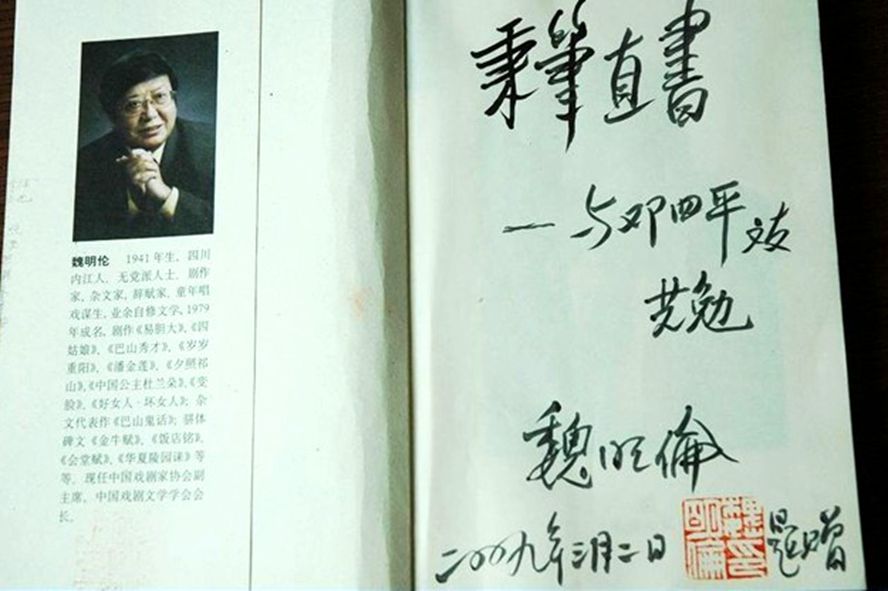 魏明伦 1941年生，四川
内江人，无党派人士，剧作
家，杂文家，辞赋家，童年唱
戏谋生，业余自修文学，1979
年成名，剧作《易胆大》、《四
姑娘》、《巴山秀才》、《岁岁
重阳》、《潘金莲》、《夕照祁
山》、《中国公主杜兰朵》、《变
脸》、《好女人·坏女人》；杂
文代表作《巴山鬼话》；骈体
碑文《金牛赋》、《饭店铭》、
《会堂赋》、《华夏陵园诔》等
等。现任中国戏剧家协会副
主席，中国戏剧文学学会会
长。
秉筆直書
— 与邓四平友
共勉
魏明倫
二〇〇九年三月二日
題贈